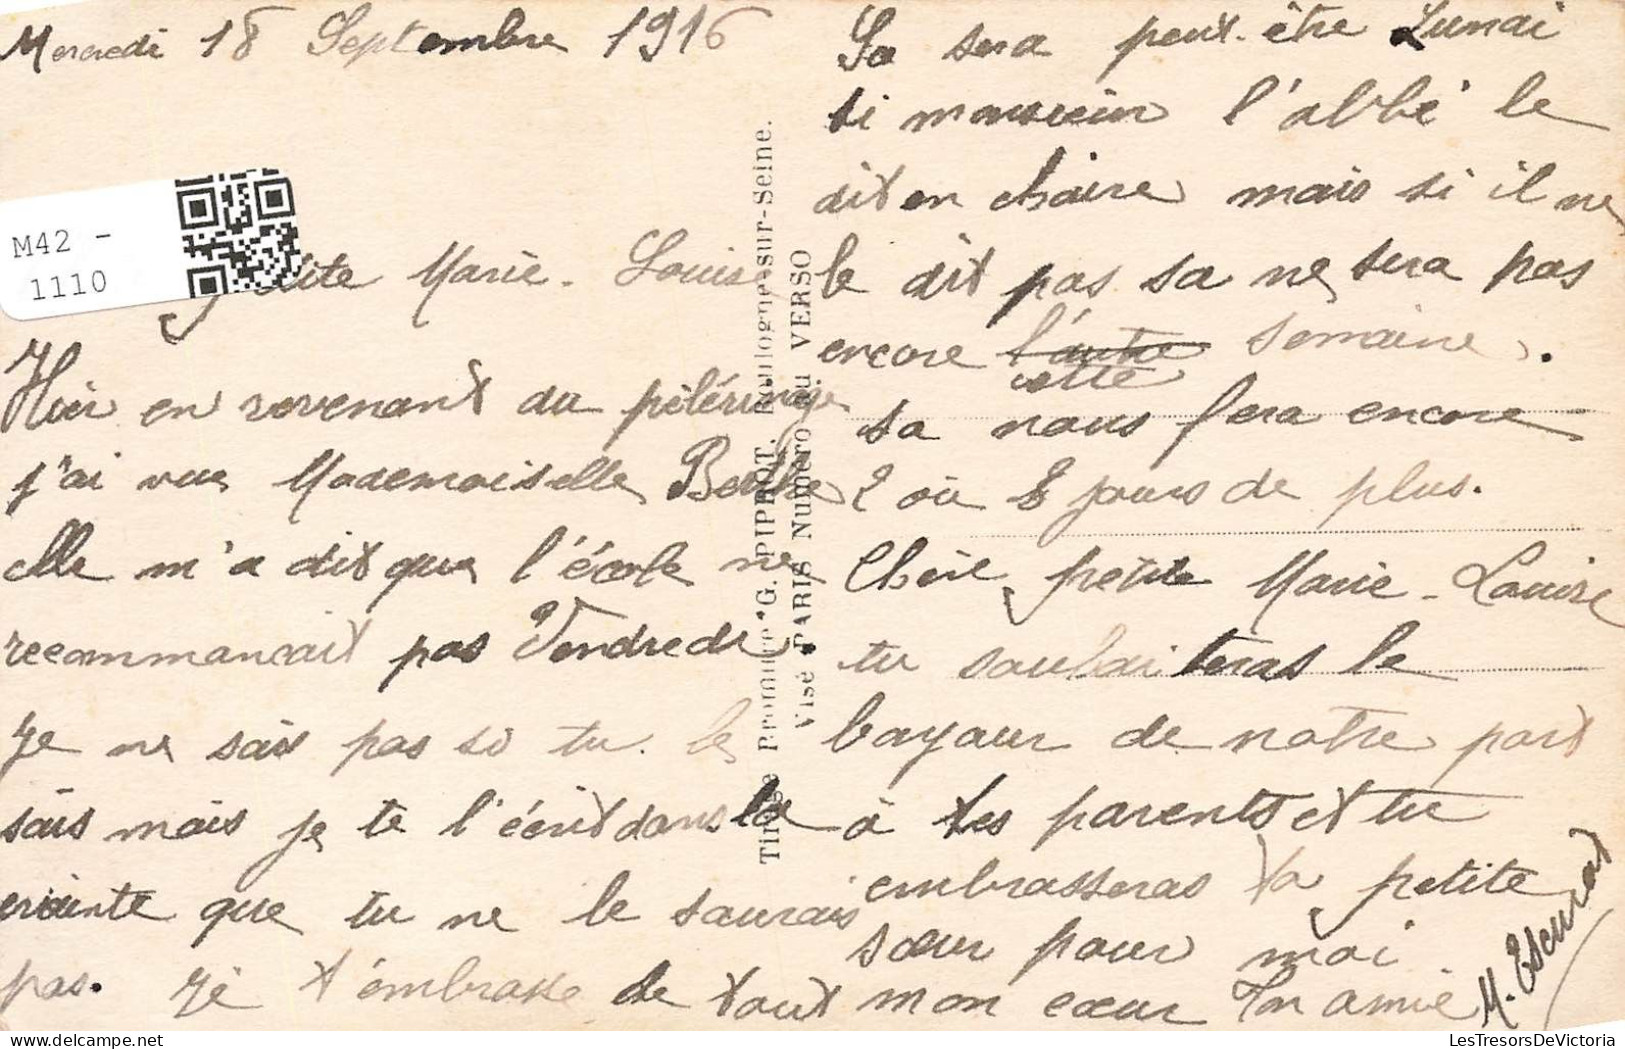 Mercredi 18 Septembre 1916
M42 -
1110
petite Marie-Louise
Hier en revenant du pélérinage
j'ai vue Mademoiselle Berthe
elle m'a dit que l'école ne
recommancait pas Vendredi
je ne sais pas si tu le
sais mais je te l'écrit dans la
criainte que tu ne le saurais
pas. je t'embrasse de tout mon cœur Ton amie
M. Escurat
Sa sera peut-être Lundi
si monsieur l'abbé le
dit en chaire mais si il ne
le dit pas sa ne sera pas
encore l'autre semaine.
cette
sa nous fera encore
2 où 8 jours de plus.
Chère petite Marie-Louise
tu souhaiteras le
bonjour de notre part
à tes parents et tu
embrasseras ta petite
sœur pour moi
Tirage Bromure "G. PIPROT. Boulogne-sur-Seine.
Visé PARIS Numéro au VERSO
LesTresorsDeVictoria.com